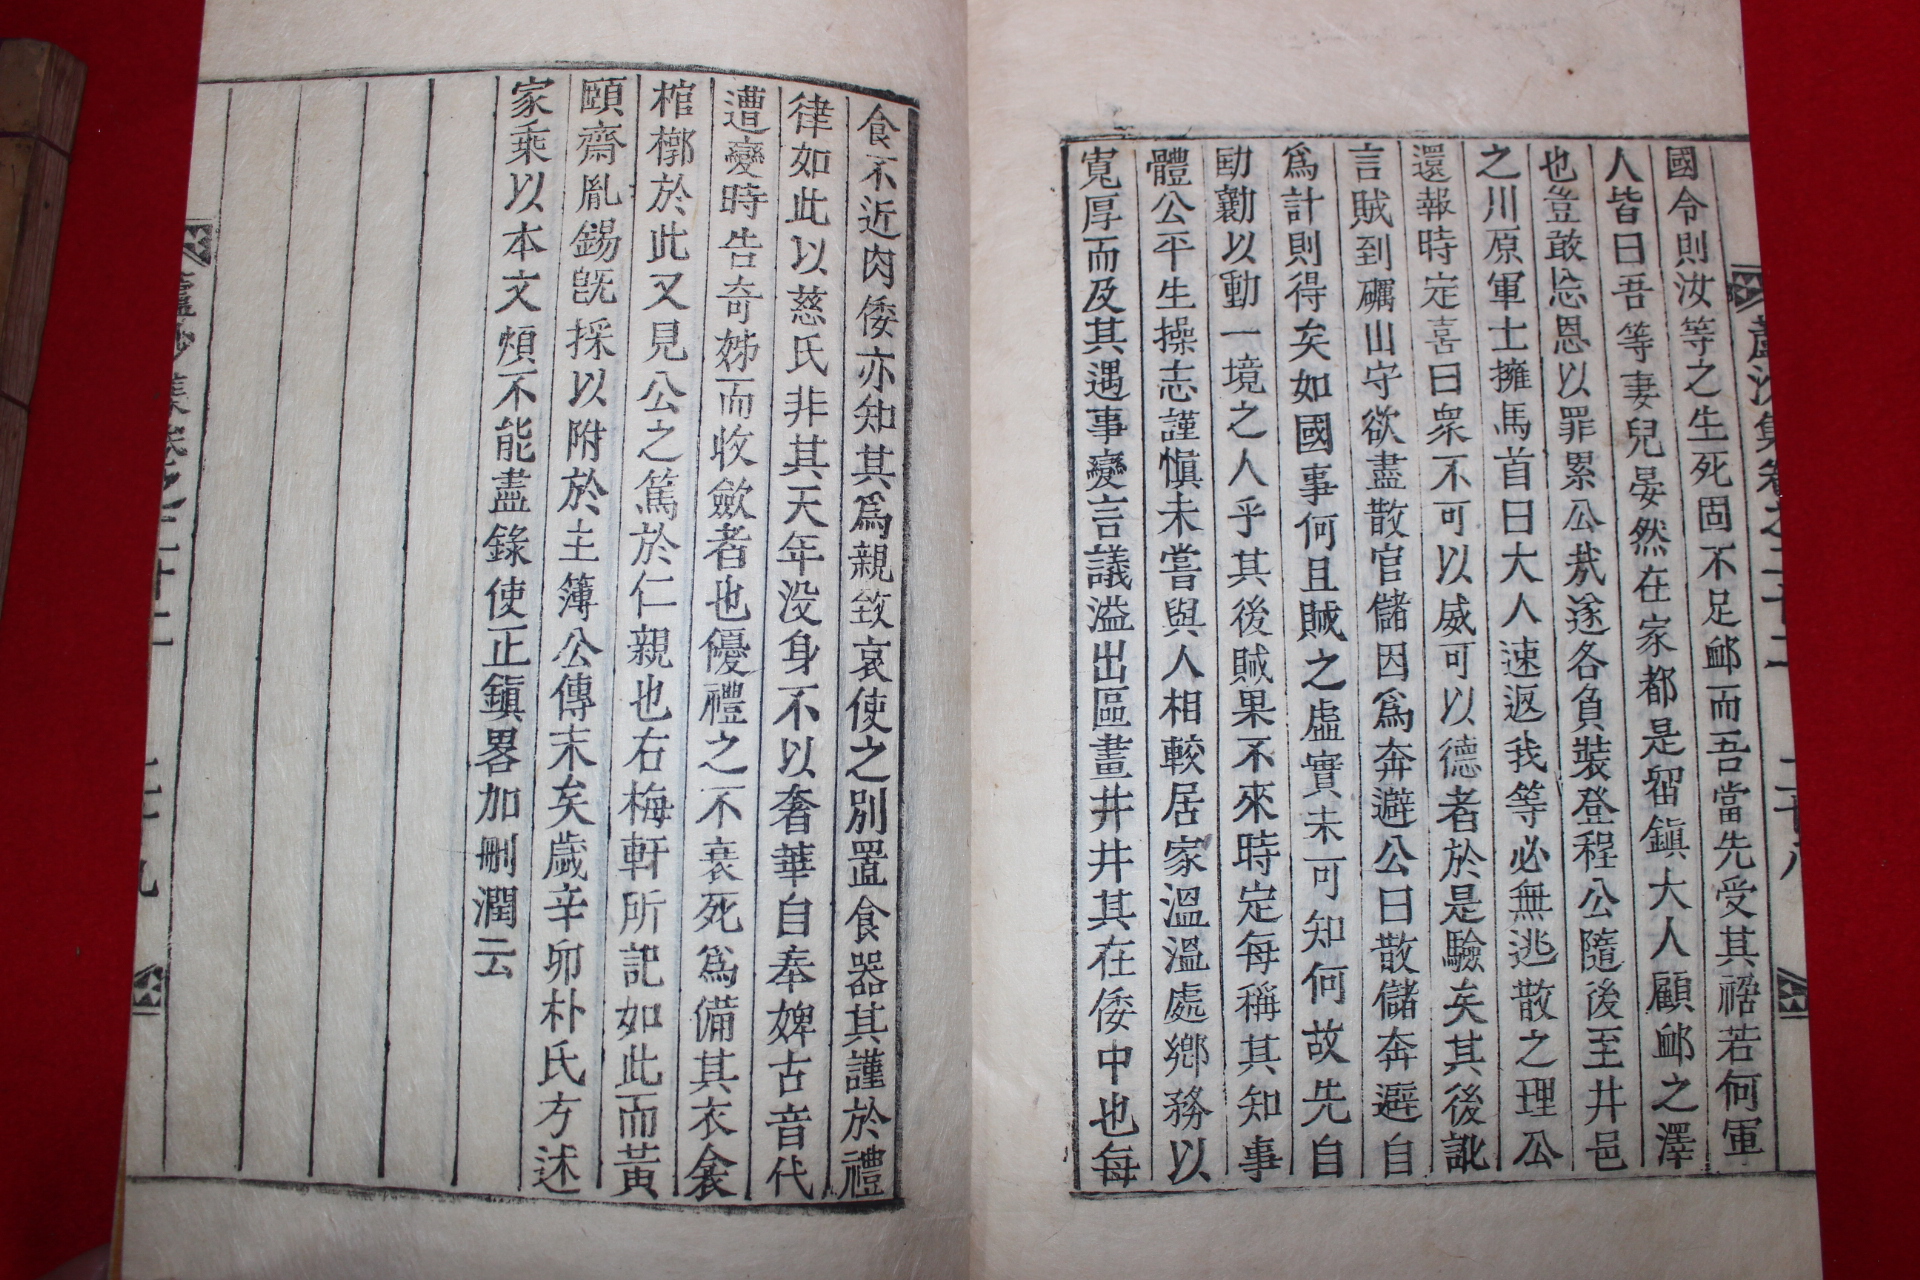 國令則汝等之生死固不足邮而吾當先受其禍若何軍
人皆曰吾等妻兒晏然在家都是留鎭大人顧邮之澤
也豈敢忘恩以罪累公㢤遂各負裝登程公隨後至井邑
之川原軍士擁馬首曰大人速返我等必無逃散之理公
還報時定喜曰衆不可以威可以德者於是驗矣其後訛
言賊到礪山守欲盡散官儲因爲奔避公曰散儲奔避自
爲計則得矣如國事何且賊之虛實未可知何故先自
劻勷以動一境之人乎其後賊果不來時定每稱其知事
體公平生操志謹愼未嘗與人相較居家溫溫處鄕務以
寬厚而及其遇事變言議溢出區畫井井其在倭中也每
食不近肉倭亦知其爲親致哀使之別置食器其謹於禮
律如此以慈氏非其天年没身不以奢華自奉婢古音代
遭變時告奇姊而收斂者也優禮之不衰死爲備其衣衾
棺槨於此又見公之篤於仁親也右梅軒所記如此而黃
頤齋胤錫旣採以附於主簿公傳末矣歲辛卯朴氏方述
家乘以本文煩不能盡錄使正鎭畧加刪潤云